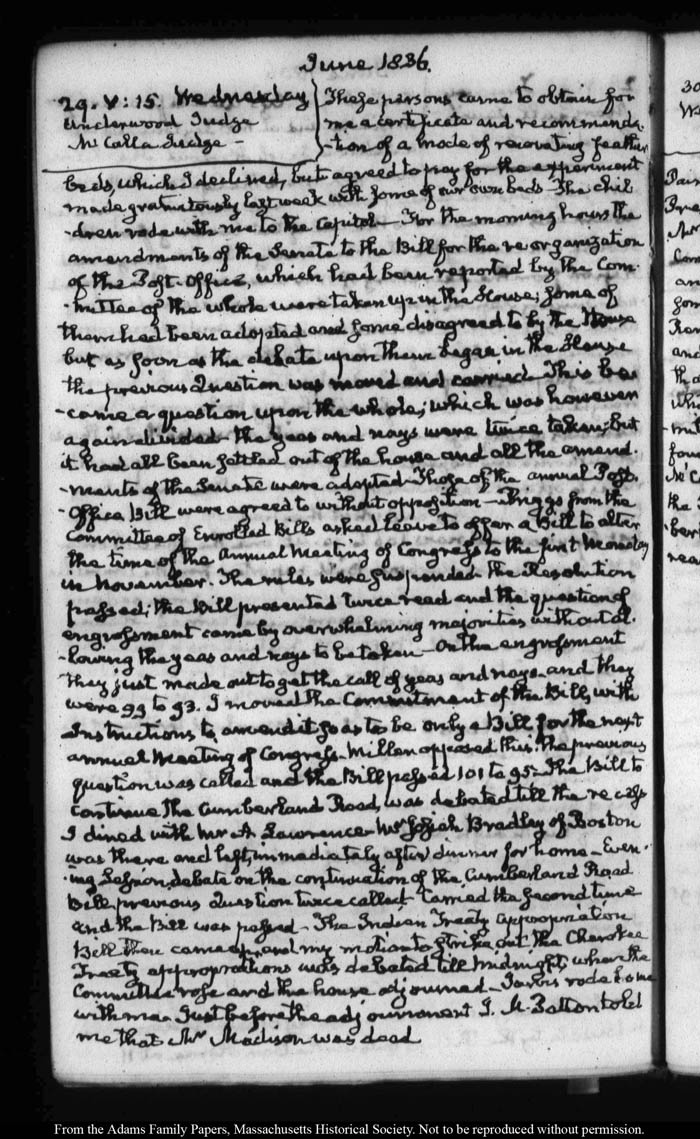 June 1836.
29. V: 15. Wednesday
Underwood Judge
McCalla Judge —
These persons came to obtain for
me a certificate and recommenda-
-tion of a mode of renovating feather
beds, which I declined, but agreed to pay for the experiment
made gratuitously last week with some of our own beds — The chil
-dren rode with me to the Capitol — For the morning hours the
amendments of the Senate to the Bill for the re organization
of the Post-Office, which had been reported by the Com-
-mittee of the whole were taken up in the House; some of
them had been adopted and some disagreed to by the House
but as soon as the debate upon them began in the House
the previous Question was moved and carried — This be
-came a question upon the whole; which was however
again divided — the yeas and nays were twice taken; but
it had all been settled out of the house and all the amend-
-ments of the Senate were adopted — Those of the annual Post-
-Office Bill were agreed to without opposition — Briggs from the
Committee of Enrolled Bills asked leave to offer a Bill to alter
the time of the Annual Meeting of Congress to the first Monday
in November. The rules were suspended — the Resolution
passed; the Bill presented twice read and the question of
engrossment came by overwhelming majorities without al-
-lowing the yeas and nays to be taken — On the engrossment
they just made out to get the call of yeas and nays — and they
were 99 to 93. I moved the Commitment of the Bill, with
Instructions to amend it so as to be only a Bill for the next
annual Meeting of Congress — Miller opposed this, the previous
question was called and the Bill passed 101 to 95 — The Bill to
continue the Cumberland Road, was debated till the recess
I dined with Mr A. Lawrence — Mr Josiah Bradley of Boston
was there and left, immediately after dinner for home — Even-
-ing Session, debate on the continuation of the Cumberland Road
Bill, previous Question twice called — carried the second time
and the Bill was passed — The Indian Treaty appropriation
Bill then came up, and my motion to strike out the Cherokee
Treaty appropriations was debated till midnight, when the
Committee rose and the house adjourned — Jarvis rode home
with me — Just before the adjournment J. M. Patton told
me that Mr Madison was dead
30
From the Adams Family Papers, Massachusetts Historical Society. Not to be reproduced without permission.